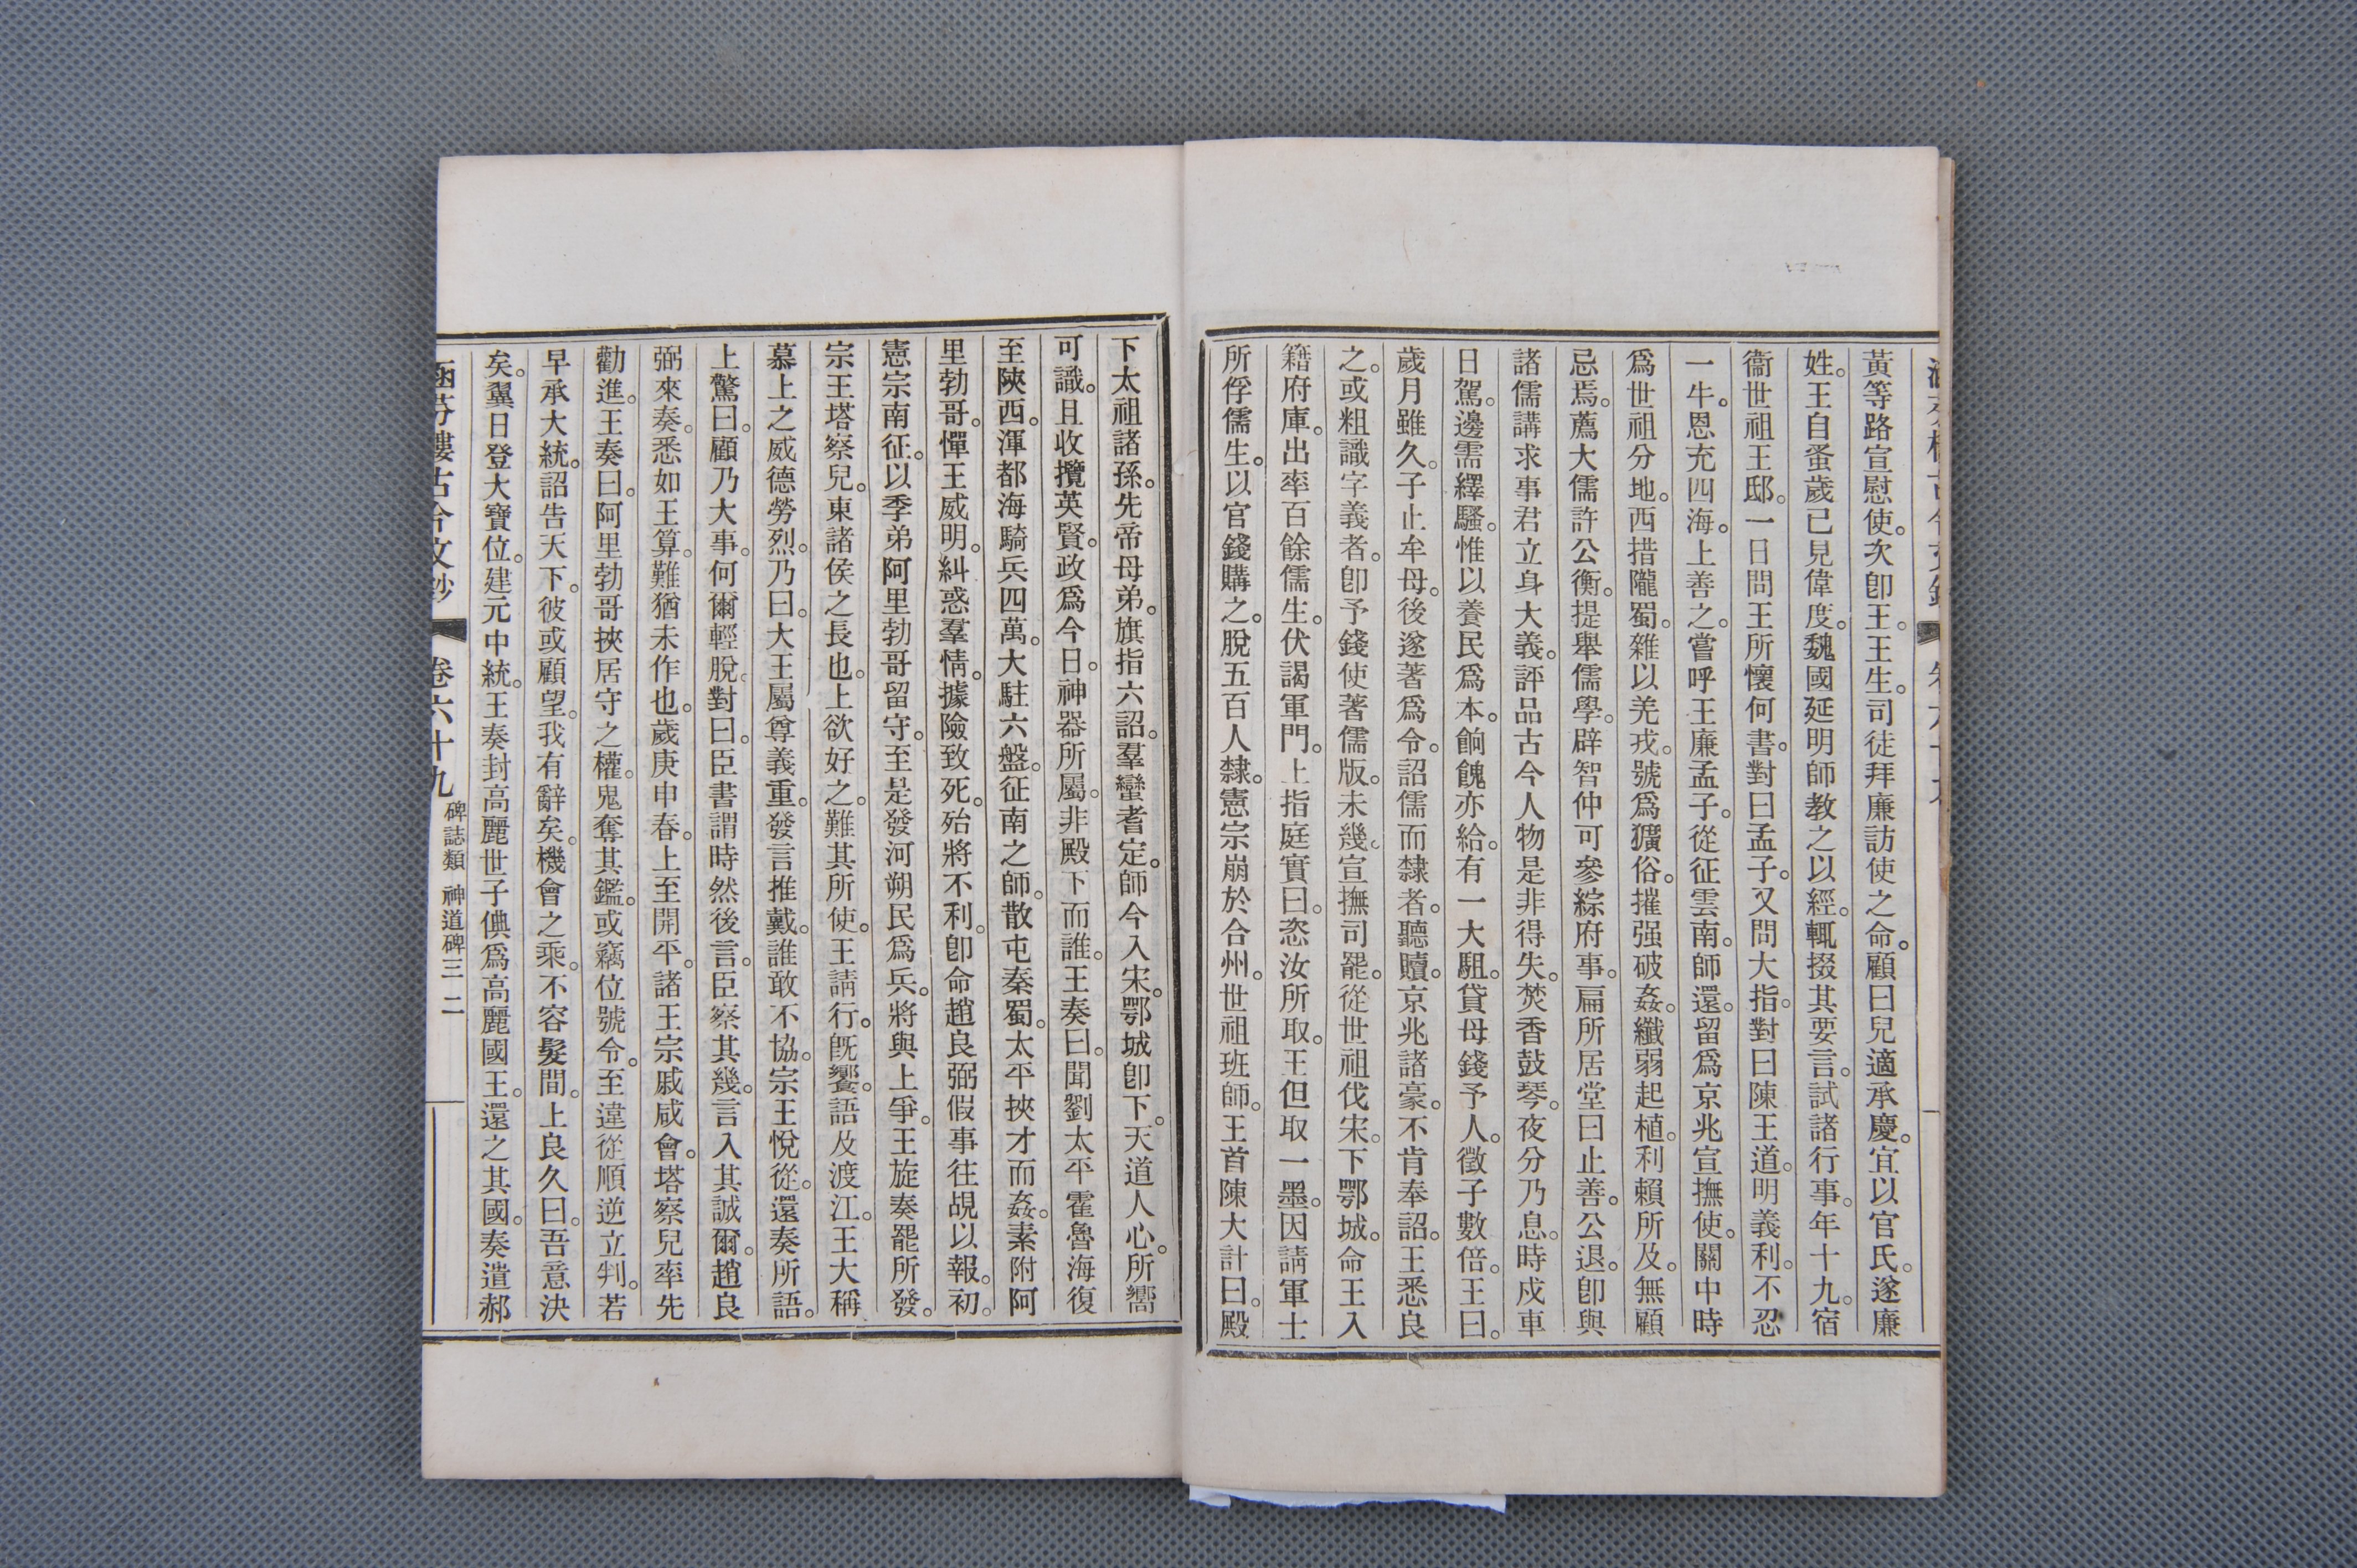 黃等路宣慰使。次卽王。王生。司徒拜廉訪使之命。顧曰兒適承慶。宜以官氏。遂廉
姓。王自蚤歲已見偉度。魏國延明師教之以經。輒掇其要言。試諸行事。年十九。宿
衞世祖王邸。一日問王所懷何書。對曰孟子。又問大指。對曰陳王道。明義利。不忍
一牛。恩充四海。上善之。嘗呼王廉孟子。從征雲南。師還。留爲京兆宣撫使。關中時
爲世祖分地。西措隴蜀。雜以羌戎。號爲獷俗。摧强破姦。纖弱起植。利賴所及。無顧
忌焉。薦大儒許公衡。提舉儒學。辟智仲可參綜府事。扁所居堂曰止善。公退。卽與
諸儒講求事君立身大義。評品古今人物是非得失。焚香鼓琴。夜分乃息。時戍車
日駕。邊需繹騷。惟以養民爲本。餉餽亦給。有一大駔。貸母錢予人。徵子數倍。王曰。
歲月雖久。子止牟母。後遂著爲令。詔儒而隸者。聽贖。京兆諸豪。不肯奉詔。王悉良
之。或粗識字義者。卽予錢使著儒版。未幾。宣撫司罷。從世祖伐宋。下鄂城。命王入
籍府庫。出率百餘儒生。伏謁軍門。上指庭實曰。恣汝所取。王但取一墨。因請軍士
所俘儒生。以官錢購之。脫五百人隸。憲宗崩於合州。世祖班師。王首陳大計曰。殿
下太祖諸孫。先帝母弟。旗指六詔。羣蠻耆定。師今入宋。鄂城卽下。天道人心。所嚮
可識。且收攬英賢。政爲今日。神器所屬。非殿下而誰。王奏曰。聞劉太平霍魯海復
至陝西。渾都海騎兵四萬。大駐六盤。征南之師。散屯秦蜀。太平挾才而姦。素附阿
里勃哥。憚王威明。糾惑羣情。據險致死。殆將不利。卽命趙良弼假事往覘以報。初。
憲宗南征。以季弟阿里勃哥留守。至是發河朔民爲兵。將與上爭。王旋奏罷所發。
宗王塔察兒。東諸侯之長也。上欲好之。難其所使。王請行。旣饗。語及渡江。王大稱
慕上之威德勞烈。乃曰。大王屬尊義重。發言推戴。誰敢不協。宗王悅從。還奏所語。
上驚曰。顧乃大事。何爾輕脫。對曰。臣書謂時然後言。臣察其幾。言入其誠爾。趙良
弼來奏。悉如王算。難猶未作也。歲庚申春。上至開平。諸王宗戚咸會。塔察兒率先
勸進。王奏曰。阿里勃哥挾居守之權。鬼奪其鑑。或竊位號令。至違從順逆立判。若
早承大統。詔告天下。彼或顧望。我有辭矣。機會之乘。不容髮間。上良久曰。吾意決
矣。翼日登大寶位。建元中統。王奏封高麗世子倎爲高麗國王。還之其國。奏遣郝
涵芬樓古今文鈔 卷六十九 碑誌類 神道碑三 二